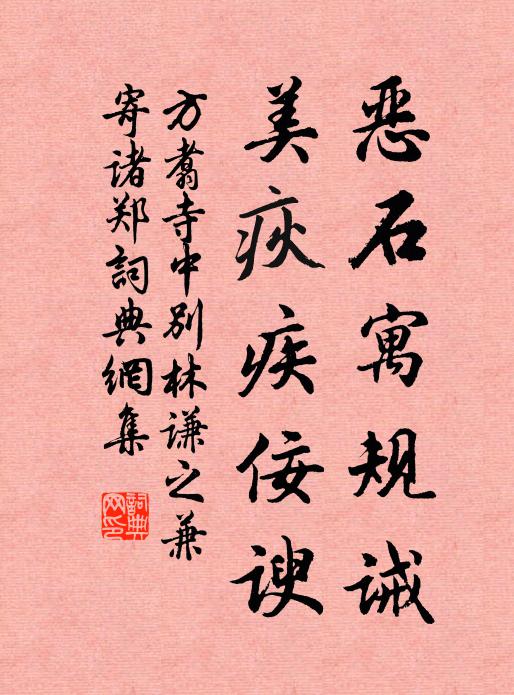 恶石寓规诫
美疢疾佞谀
方翥寺中别林谦之兼
寄诸郑詞典網集
詞典網印